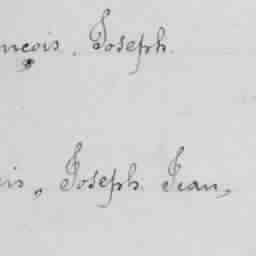 nçois, Joseph.
is, Joseph Jean,